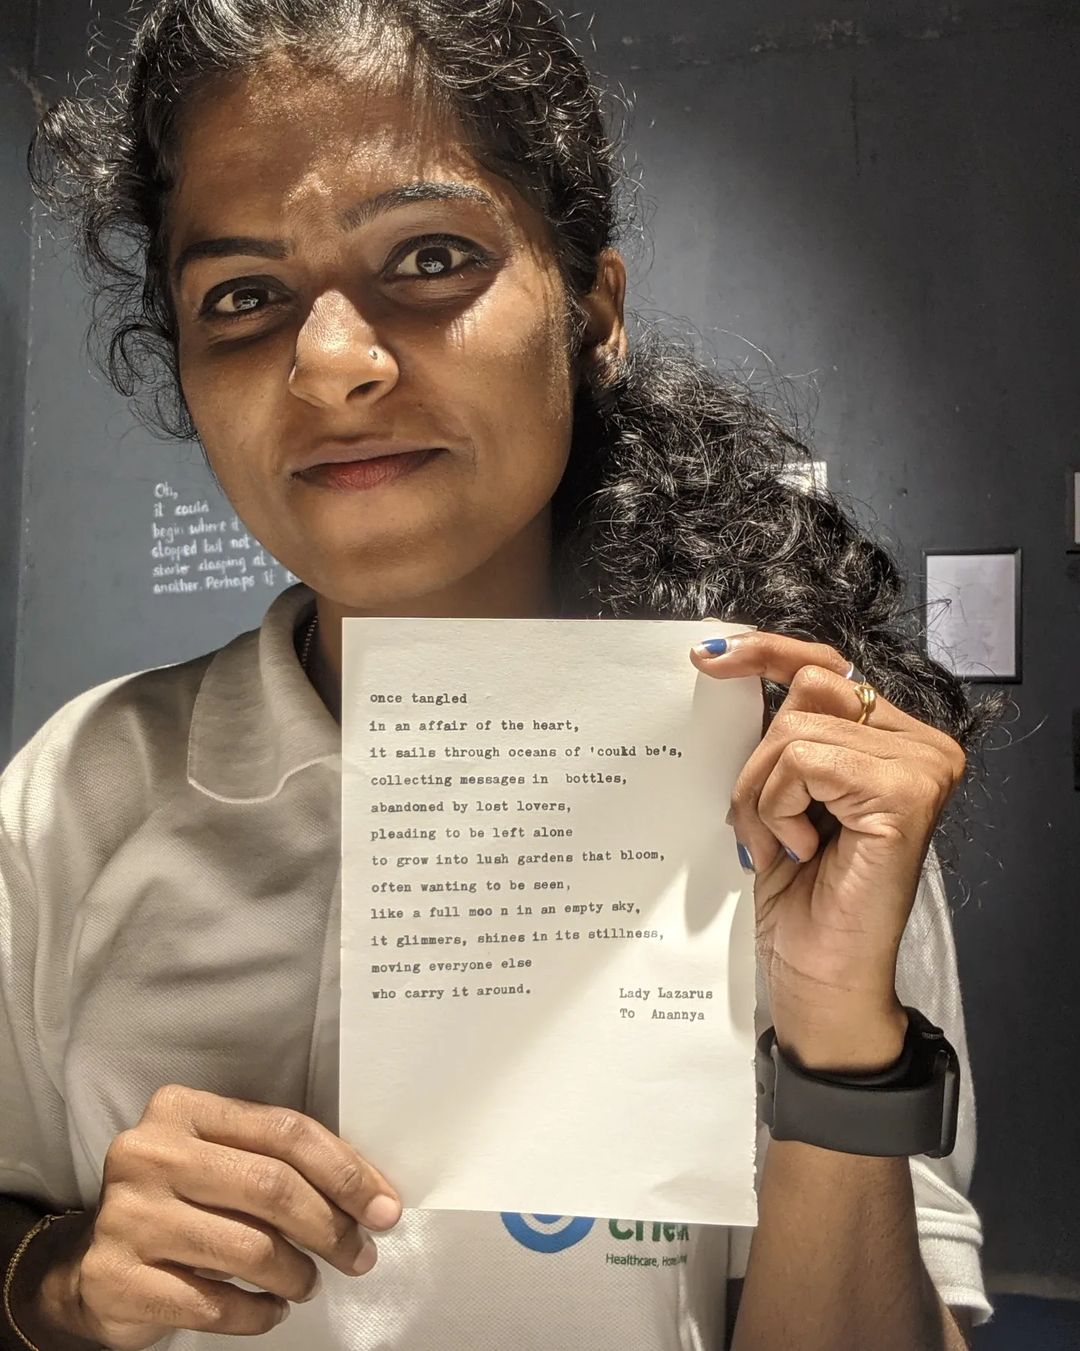 Oh,
it could
begin where it
stopped but not
another. Perhaps it
once tangled
in an affair of the heart,
it sails through oceans of 'could be's,
collecting messages in bottles,
abandoned by lost lovers,
pleading to be left alone
to grow into lush gardens that bloom,
often wanting to be seen,
like a full moo n in an empty sky,
it glimmers, shines in its stillness,
moving everyone else
who carry it around.
Lady Lazarus
To Anannya
Healthcare,